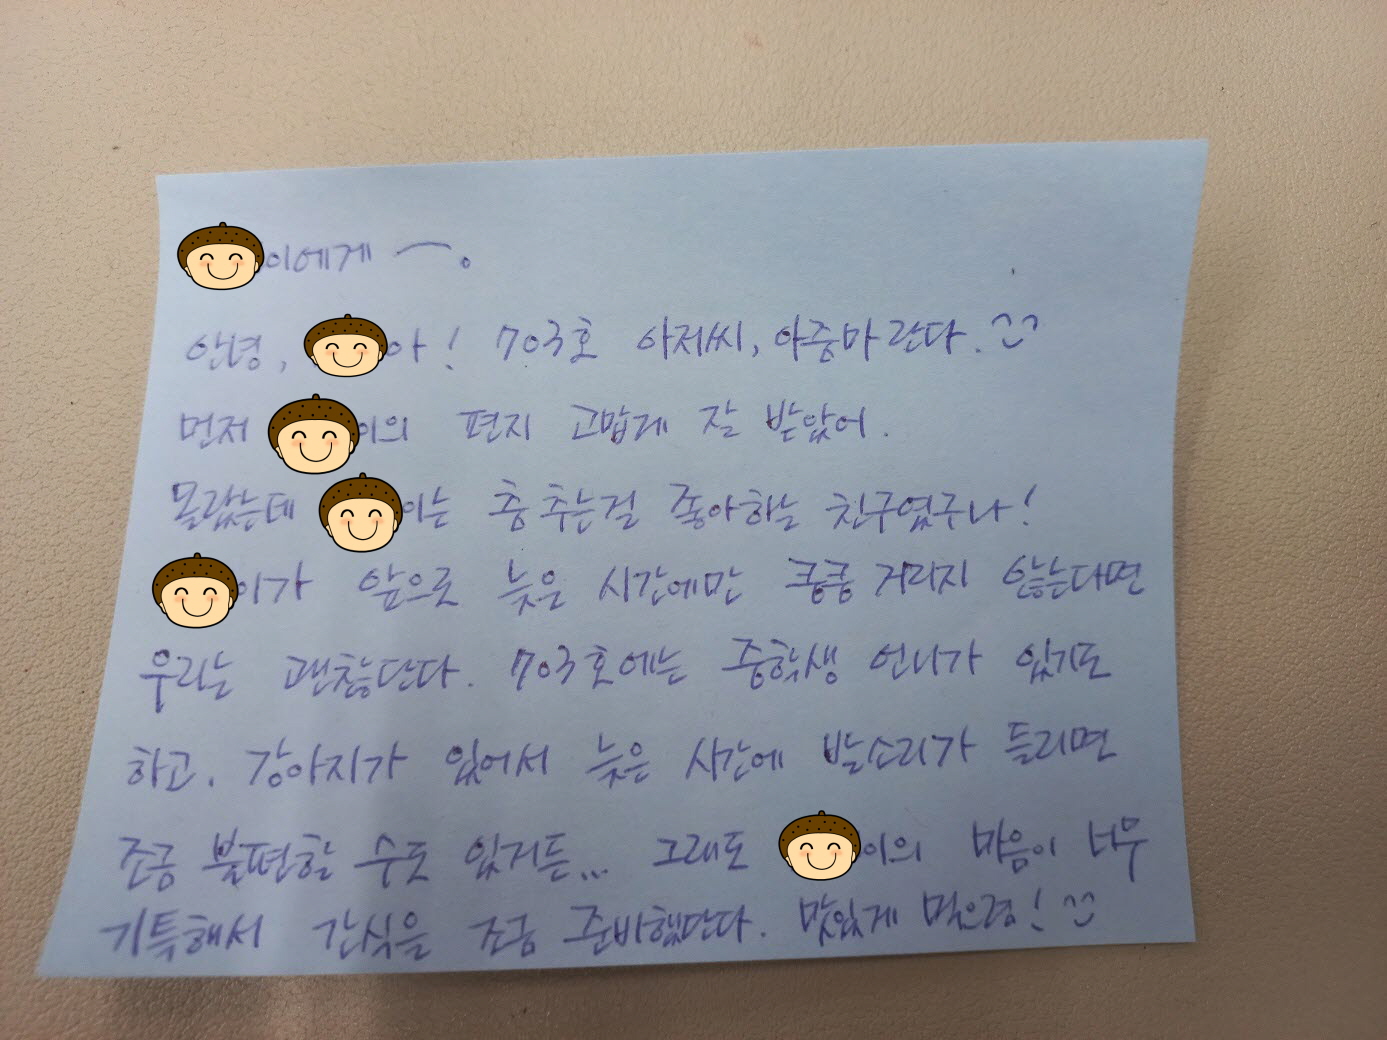 이에게 ~.
안녕, 아! 703호 아저씨, 아줌마란다. ^^
먼저 이의 편지 고맙게 잘 받았어.
몰랐는데 이는 춤추는걸 좋아하는 친구였구나!
이가 앞으로 늦은 시간에만 쿵쿵 거리지 않는다면
우리는 괜찮단다. 703호에는 중학생 언니가 있기도
하고. 강아지가 있어서 늦은 시간에 발소리가 들리면
조금 불편할 수도 있거든... 그래도 이의 마음이 너무
기특해서 간식을 조금 준비했단다. 맛있게 먹으렴! ^^